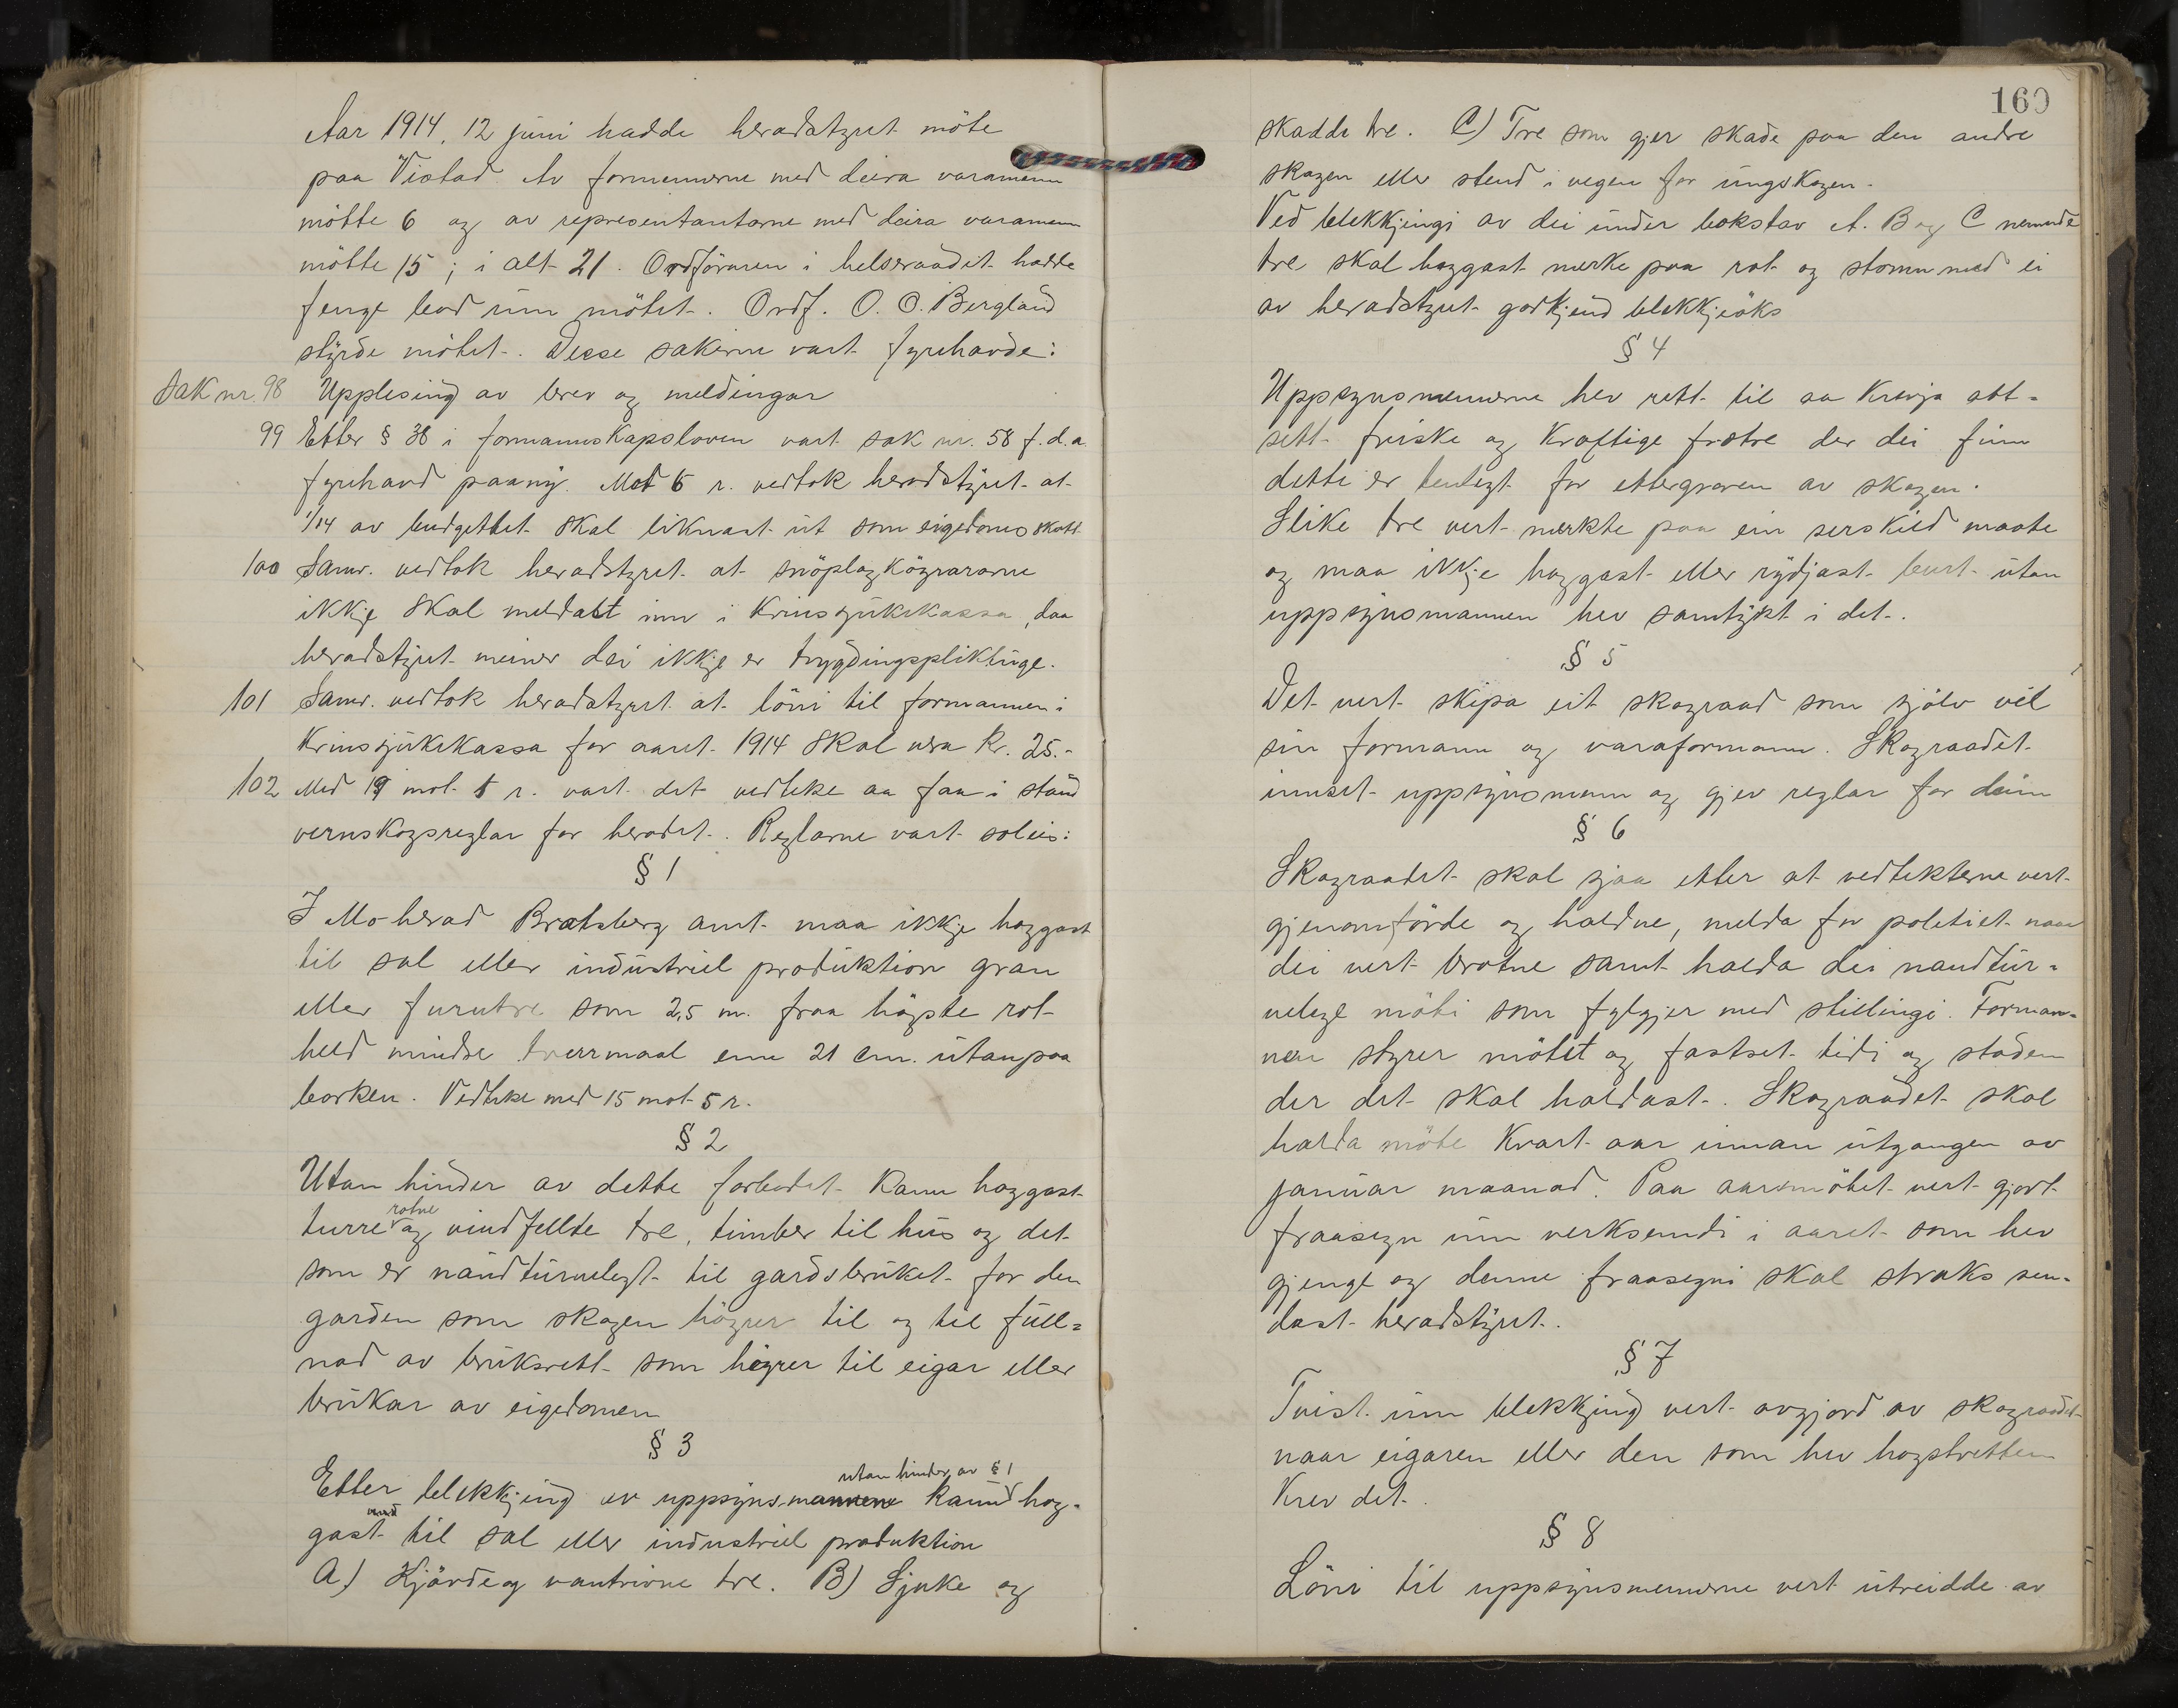 Aar 1914, 12 juni hadde heradstyret möte
paa Vistad. Av formennerne med deira varamenn
mötte 6 og av representantarne med deira varamenn
mötte 15; i alt 21. Ordföraren i helseraadet hadde
fenge bod um mötet. Ordf. O. O. Bergland
styrde mötet. Desse sakerne vart fyrehavde:
Sak nr. 98 Upplesing av brev og meldingar
99 Etter § 38 i formannskapsloven vart sak nr. 58 f.d.a.
fyrehavd paany. Med 6 r. vedtok heradstyret at
1/14 av budgettet skal liknast ut som eigedomsskatt
100 Samr. vedtok heradstyret at snöplogköyrarane
ikkje skal meldast inn i Krinssjukekassa, daa
heradstyret meiner dei ikkje er trygdingspliktuge.
101 Samr. vedtok heradstyret at löni til formannen i
Krinssjukekassa for aaret 1914 skal vera kr. 25.-
102 Med 19 mot 1 r. vart det vedteke aa faa i stand
vernskogsreglar for heradet. Reglarne vart soleis:
§ 1
I Mo herad Bratsberg amt maa ikkje hoggast
til sal eller industriel produktion gran
eller furutre som 2,5 m. fraa högste rot-
held mindre tverrmaal enn 21 cm. utanpaa
borken. Vedteke med 15 mot 5 r.
§ 2
Utan hinder av dette forbodet kann hoggast
turre rotne og vindfellde tre, timber til hus og det
som er naudturvelegt til gardsbruket for den
garden som skogen höyrer til og til full=
nad av bruksrett som höyrer til eigar eller
brukar av eigedomen
§ 3
utan hinder av § 1
Etter blekkjing av uppsynsmannen kann hog-
gast til sal eller industriel produktion
A) Kjörde og vantrivne tre. B) Sjuke og
160
skadde tre. C) Tre som gjer skade paa den andre
skogen eller stend i vegen for ungskogen.
Ved blekkjingi av dei under bokstav A. B og C nemnde
tre skal hoggast merke paa rot og stomn med ei
av heradstyret godkjend blekkjeöks
§ 4
Uppsynsmennerne hev rett til aa krevja att=
sett friske og kraftige frötre der dei finn
dette er tenlegt for ettergroren av skogen.
Slike tre vert merkte paa ein serskild maate
og maa ikkje hoggast eller rydjast burt utan
uppsynsmannen hev samtykt i det.
§ 5
Det vert skipa eit skograad som sjölv vel
sin formann og varaformann. Skograadet
innset uppsynsmenn og gjev reglar for deim
§ 6
Skograadet skal sjaa etter at vedtekterne vert
gjenomförde og haldne, melda for politiet naar
dei vert brotne samt halda dei naudtur=
velege möti som fylgjer med stillingi. Forman=
nen styrer mötet og fastset tidi og staden
der det skal haldast. Skograadet skal
halda möte kvart aar innan utgangen av
januar maanad. Paa aarsmötet vert gjort
fraasegn um verksemdi i aaret som hev
gjenge og denne fraasegni skal straks sen=
dast heradstyret.
§ 7
Tvist um blekkjing vert avgjord av skograadet
naar eigaren eller den som hev hogstretten
krev det.
§ 8
Löni til uppsynsmennerne vert utreidde av